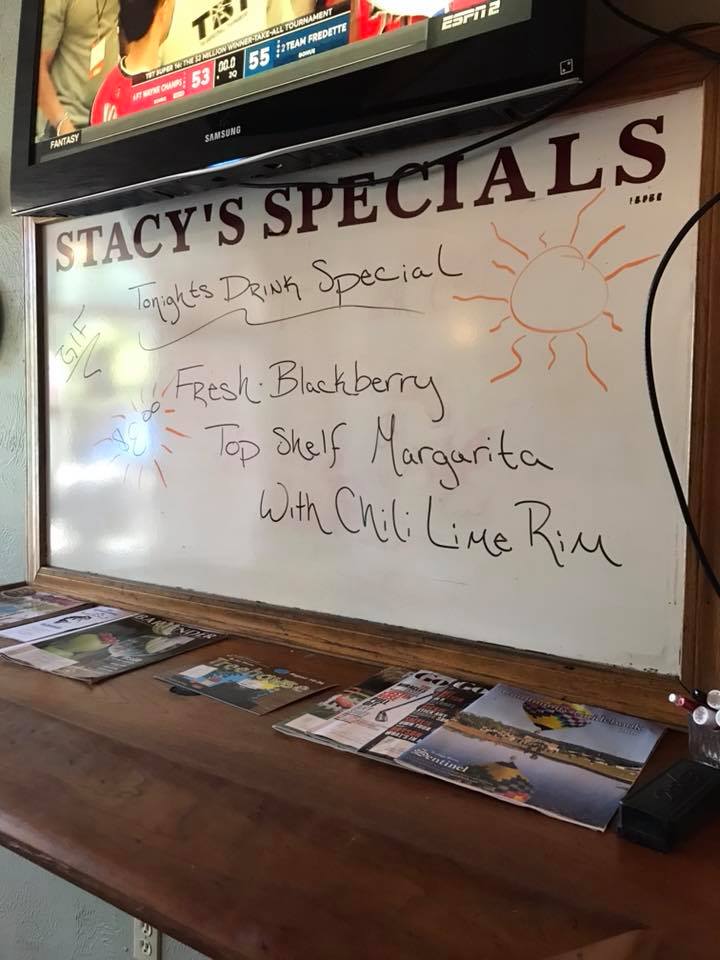 TBT
ESPN 2
TBT SUPER 16: THE $2 MILLION WINNER-TAKE-ALL TOURNAMENT
FT WAYNE CHAMPS 53 00.0 2Q 55 2 TEAM FREDETTE
BONUS
FANTASY
SAMSUNG
STACY'S SPECIALS
Tonights Drink Special
GIF
Fresh Blackberry
Top Shelf Margarita
With Chili Lime Rim
BARTENDER
Sentinel